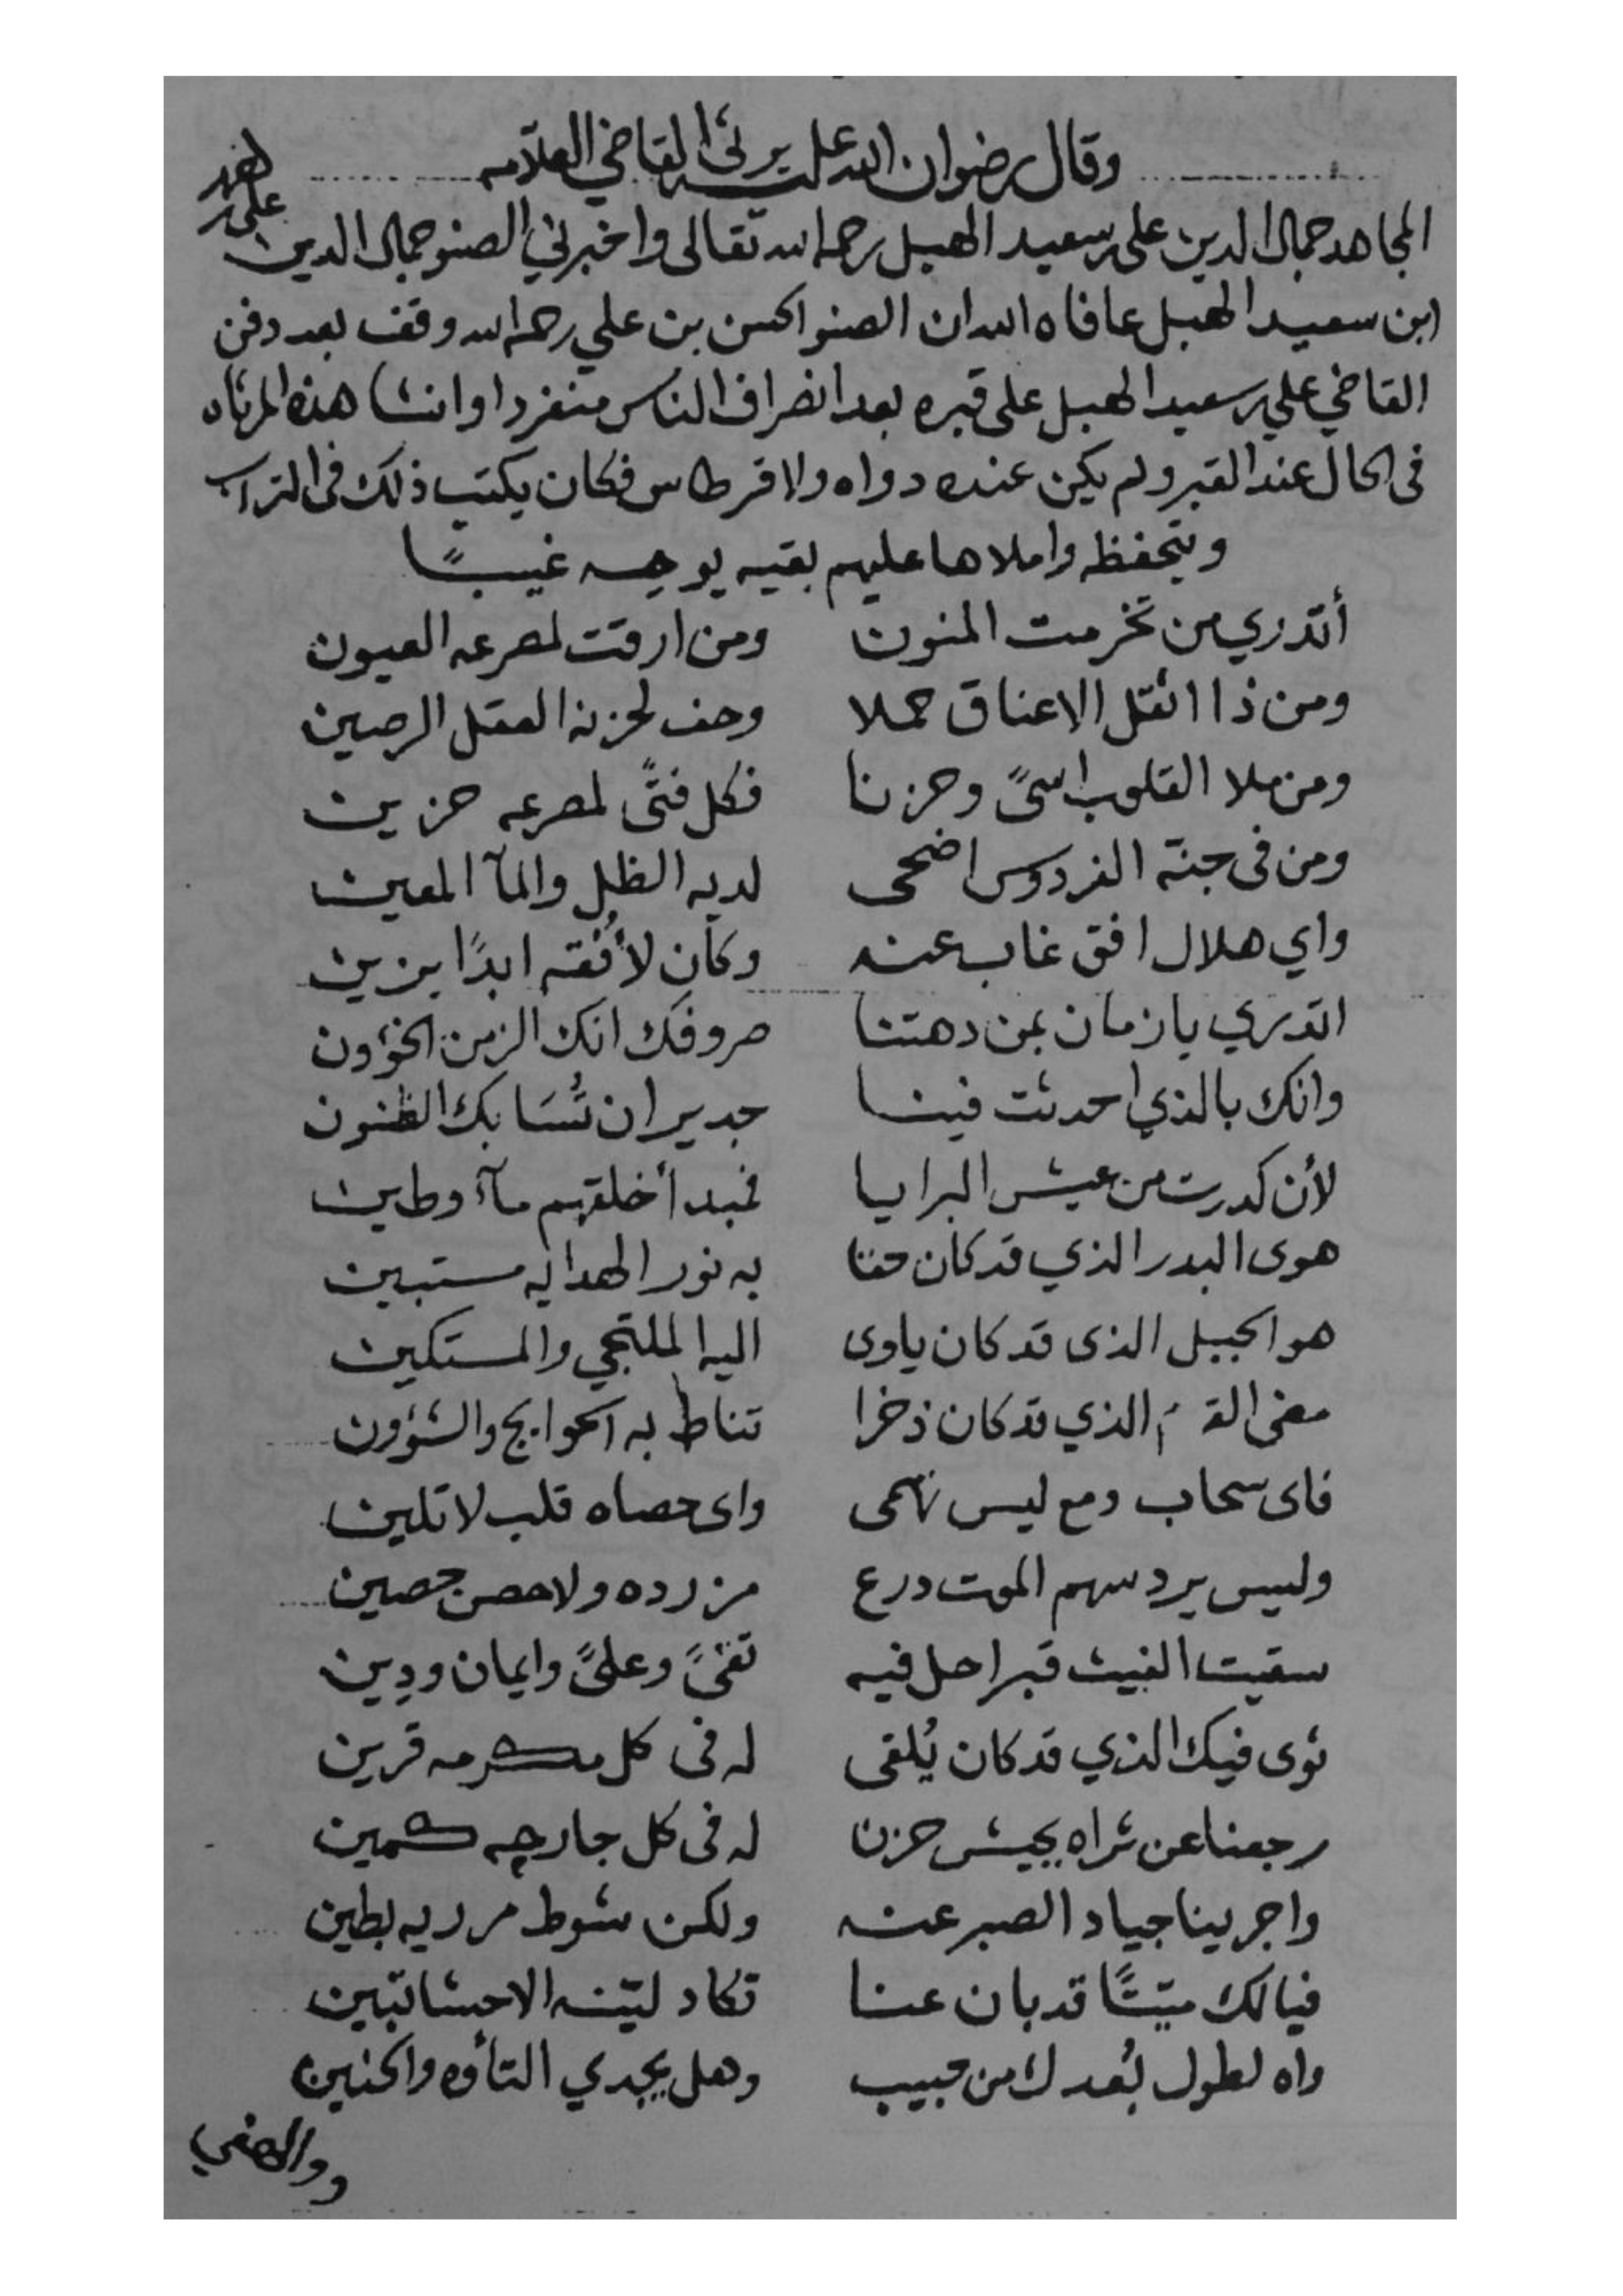 وقال رضوان الله عليه يرثى القاضي العلامه
المجاهد جمال الدين على بن سعيد الهبل رحمه الله تعالى واخبرني الصنو جمال الدين
على بن
ابن سعيد الهبل عافاه الله ان الصنو الحسن بن علي رحمه الله وقف بعد دفن
القاضي علي بن سعيد الهبل على قبره بعد انصراف الناس منفردا وانشا هذه المرثاه
فى الحال عند القبر ولم يكن عنده دواه ولا قرطاس فكان يكتب ذلك فى التراب
ويتحفظه واملاها عليهم بقيه يومه غيبًا
أتدري من تخرمت المنون ومن ارقت لمصرعه العيون
ومن ذا اثقل الاعناق حملا وخف لحزنه العقل الرصين
ومن ملا القلوب اسىً وحزنا فكل فتًى لمصرعه حزين
ومن فى جنة الفردوس اضحى لديه الظل والمآ المعين
واي هلال افق غاب عنه وكان لأُفقه ابدًا يزين
اتدري يا زمان بمن دهتنا صروفك انك الزمن الخؤون
وانك بالذي احدثت فينا جدير ان تُسَا بك الظنون
لأن كدرت من عيش البرايا فمبدأ خلقهم مآء وطين
هوى البدر الذي قد كان حقا به نور الهدايه مستبين
هو الجبل الذى قد كان ياوى اليه الملتجي والمستكين
مضى القرم الذي قد كان ذخرا تناط به الحوايج والشؤون
فاى سحاب دمع ليس تهمى واى حصاه قلب لا تلين
وليس يرد سهم الموت درع مزرده ولا حصن حصين
سقيت الغيث قبرا حل فيه تقىً وعلىً وايمان ودِين
ثوى فيك الذي قد كان يُلقى له فى كل مكرمه قرين
رجعنا عن ثراه بجيش حزن له فى كل جارحه كمين
واجرينا جياد الصبر عنه ولكن شوط مرزيه بطين
فيا لك ميّتًا قد بان عنا تكاد لبَينه الاحشا تبين
واه لطول بُعدك من حبيب وهل يجدي التأوه والحنين